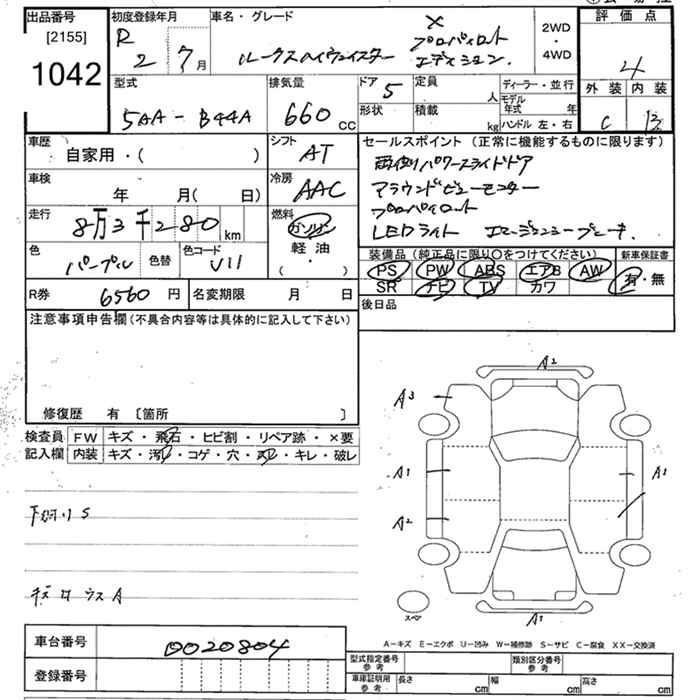 出品番号 初度登録年月 車名・グレード 評価点
[2155]
1042
R 2 7月
ルークスハイウェイスター X プロパイロット エディション
2WD ・ 4WD
4
外装 内装
C B
型式 排気量 ドア 定員 ディーラー・並行
5AA-B44A 660 CC 5 人
モデル年式 年
形状 積載 kg ハンドル 左・右
車歴 シフト セールスポイント(正常に機能するものに限ります)
自家用・( ) AT
両側パワースライドドア
車検 冷房
年 月( 日) AAC
アラウンドビューモニター
プロパイロット
LEDライト エマージェンシーブレーキ
走行 燃料
8万3千280 km ガソリン
軽油
( ・ )
色 色替 色コード
パープル V11
装備品(純正品に限り〇をつけてください) 新車保証書
PS PW ABS エアB AW 有・無
SR ナビ TV カワ
R券 6560円 名変期限 月 日
後日品
注意事項申告欄(不具合内容等は具体的に記入して下さい)
修復歴 有 〔箇所 〕
検査員 FW キズ・飛石・ヒビ割・リペア跡・×要
記入欄 内装 キズ・汚レ・コゲ・穴・スレ・キレ・破レ
A2
A3
A1 A1
A2
A1
スペア
下回りS
A-キズ E-エクボ U-凹み W-補修跡 S-サビ C-腐食 XX-交換済
車台番号 0020804
登録番号
型式指定番号 参考 類別区分番号 参考
車庫証明用 参考 長さ cm 幅 cm 高さ cm